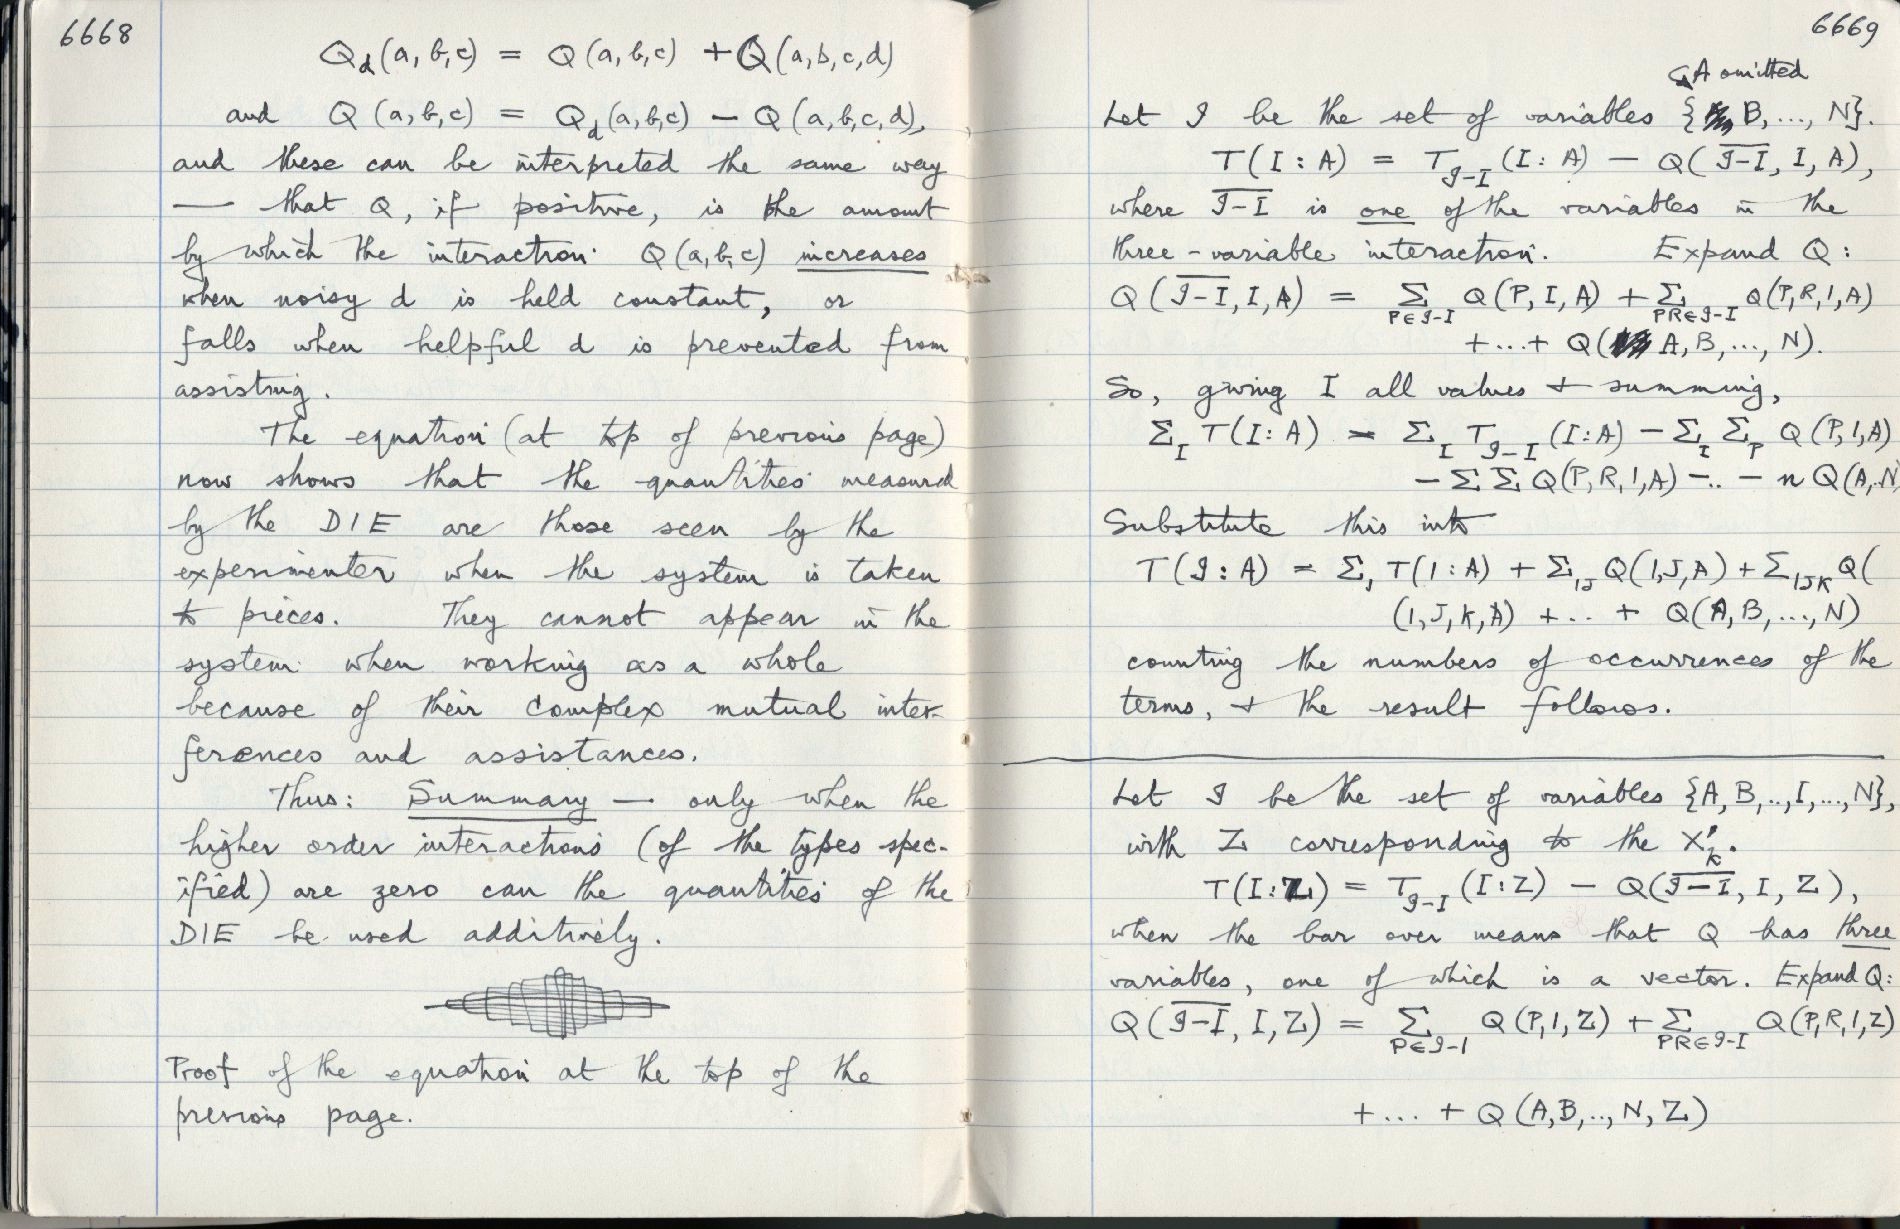 6668
Q_d(a,b,c) = Q(a,b,c) + Q(a,b,c,d)
and Q(a,b,c) = Q_d(a,b,c) − Q(a,b,c,d),
and these can be interpreted the same way
— that Q, if positive, is the amount
by which the interaction Q(a,b,c) increases
when noisy d is held constant, or
falls when helpful d is prevented from
assisting.
The equation (at top of previous page)
now shows that the quantities measured
by the DIE are those seen by the
experimenter when the system is taken
to pieces. They cannot appear in the
system when working as a whole
because of their complex mutual inter-
ferences and assistances.
Thus: Summary — only when the
higher order interactions (of the types spec-
ified) are zero can the quantities of the
DIE be used additively.
Proof of the equation at the top of the
previous page.
6669
A omitted
Let I be the set of variables {B, ..., N}.
T(I : A) = T_{I−I}(I : A) − Q(\overline{I−I}, I, A),
where \overline{I−I} is one of the variables in the
three-variable interaction. Expand Q:
Q(\overline{I−I}, I, A) = Σ_{P∈I−I} Q(P, I, A) + Σ_{PR∈I−I} Q(P,R,I,A)
+ ... + Q(A, B, ..., N).
So, giving I all values & summing,
Σ_I T(I : A) = Σ_I T_{I−I}(I : A) − Σ_I Σ_P Q(P,I,A)
− Σ Σ Q(P,R,I,A) − .. − n Q(A,..N
Substitute this into
T(I : A) = Σ_I T(I : A) + Σ_{IJ} Q(I,J,A) + Σ_{IJK} Q(
(I,J,K,A) + .. + Q(A,B,...,N)
counting the numbers of occurrences of the
terms, & the result follows.
Let I be the set of variables {A, B, .., I, ..., N},
with Z corresponding to the X'_k.
T(I : Z) = T_{I−I}(I : Z) − Q(\overline{I−I}, I, Z),
when the bar over means that Q has three
variables, one of which is a vector. Expand Q:
Q(\overline{I−I}, I, Z) = Σ_{P∈I−I} Q(P,I,Z) + Σ_{PR∈I−I} Q(P,R,I,Z)
+ ... + Q(A,B,..,N,Z)